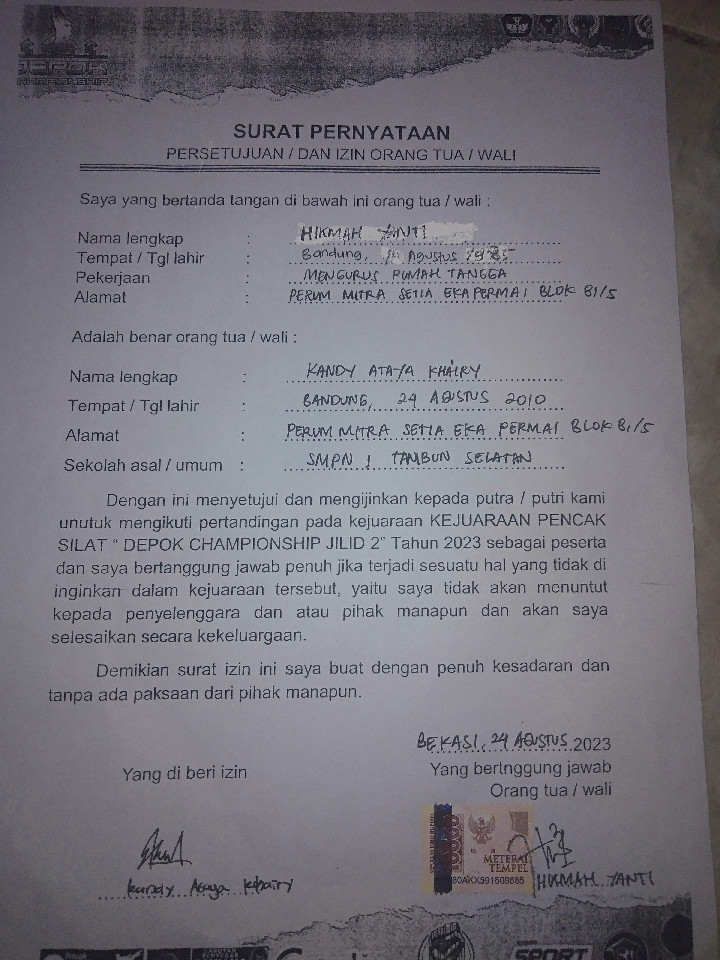 DEPOK
CHAMPIONSHIP
SURAT PERNYATAAN
PERSETUJUAN / DAN IZIN ORANG TUA / WALI
Saya yang bertanda tangan di bawah ini orang tua / wali :
Nama lengkap : HIKMAH YANTI
Tempat / Tgl lahir : Bandung, Agustus
Pekerjaan : MENGURUS RUMAH TANGGA
Alamat : PERUM MITRA SETIA EKA PERMAI BLOK B1/5
Adalah benar orang tua / wali :
Nama lengkap : KANDY ATAYA KHAIRY
Tempat / Tgl lahir : BANDUNG, 24 AGUSTUS 2010
Alamat : PERUM MITRA SETIA EKA PERMAI BLOK B1/5
Sekolah asal / umum : SMPN 1 TAMBUN SELATAN
Dengan ini menyetujui dan mengijinkan kepada putra / putri kami
unutuk mengikuti pertandingan pada kejuaraan KEJUARAAN PENCAK
SILAT " DEPOK CHAMPIONSHIP JILID 2" Tahun 2023 sebagai peserta
dan saya bertanggung jawab penuh jika terjadi sesuatu hal yang tidak di
inginkan dalam kejuaraan tersebut, yaitu saya tidak akan menuntut
kepada penyelenggara dan atau pihak manapun dan akan saya
selesaikan secara kekeluargaan.
Demikian surat izin ini saya buat dengan penuh kesadaran dan
tanpa ada paksaan dari pihak manapun.
BEKASI, 24 AGUSTUS 2023
Yang di beri izin
Yang bertnggung jawab
Orang tua / wali
10000
METERAI
TEMPEL
HIKMAH YANTI
Kandy Ataya Khairy
SPORT